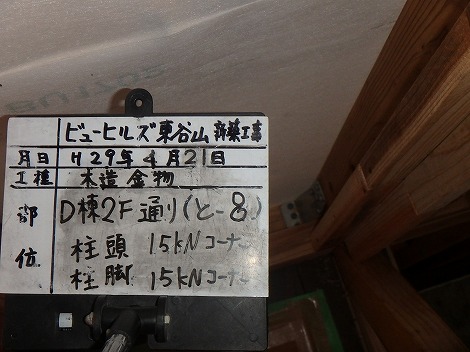 ビューヒルズ東谷山 新築工事
月日 H29年4月21日
工種 木造金物
部位 D棟2F通り(と-8)
柱頭 15kNコーナー
柱脚 15kNコーナー